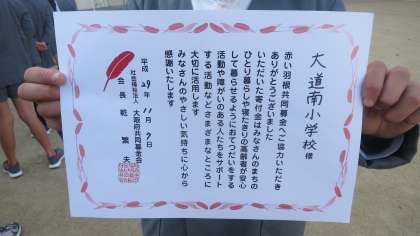 大道南小学校 様
赤い羽根共同募金へご協力いただき
ありがとうございました
いただいた寄付金はみなさんのまちの
ひとり暮らしや寝たきりの高齢者が安心
して暮らせるようにおてつだいをする
活動や障がいのある人たちをサポート
する活動などさまざまなところに
大切に活用します
みなさんのやさしい気持ちに心から
感謝いたします
平成29年11月9日
社会福祉法人 大阪府共同募金会
会長 乾 繁夫